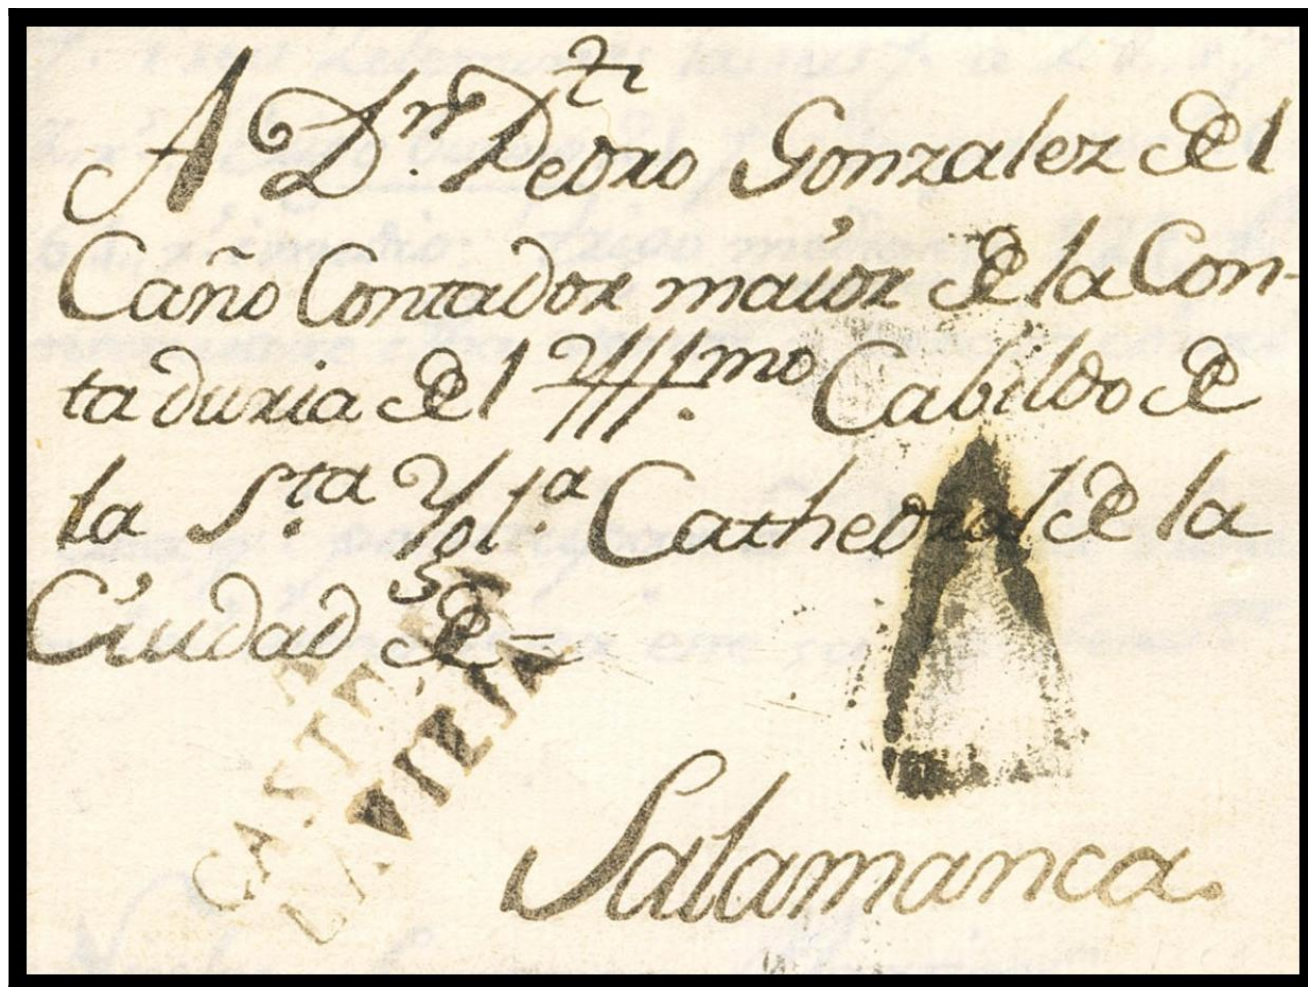 A Dn. Pedro Gonzalez del
Caño Contador maior de la Con-
taduria del Yllmo. Cabildo de
la Sta. Ygla. Cathedral de la
Ciudad de =
CASTILLA
LA VIEJA
Salamanca.